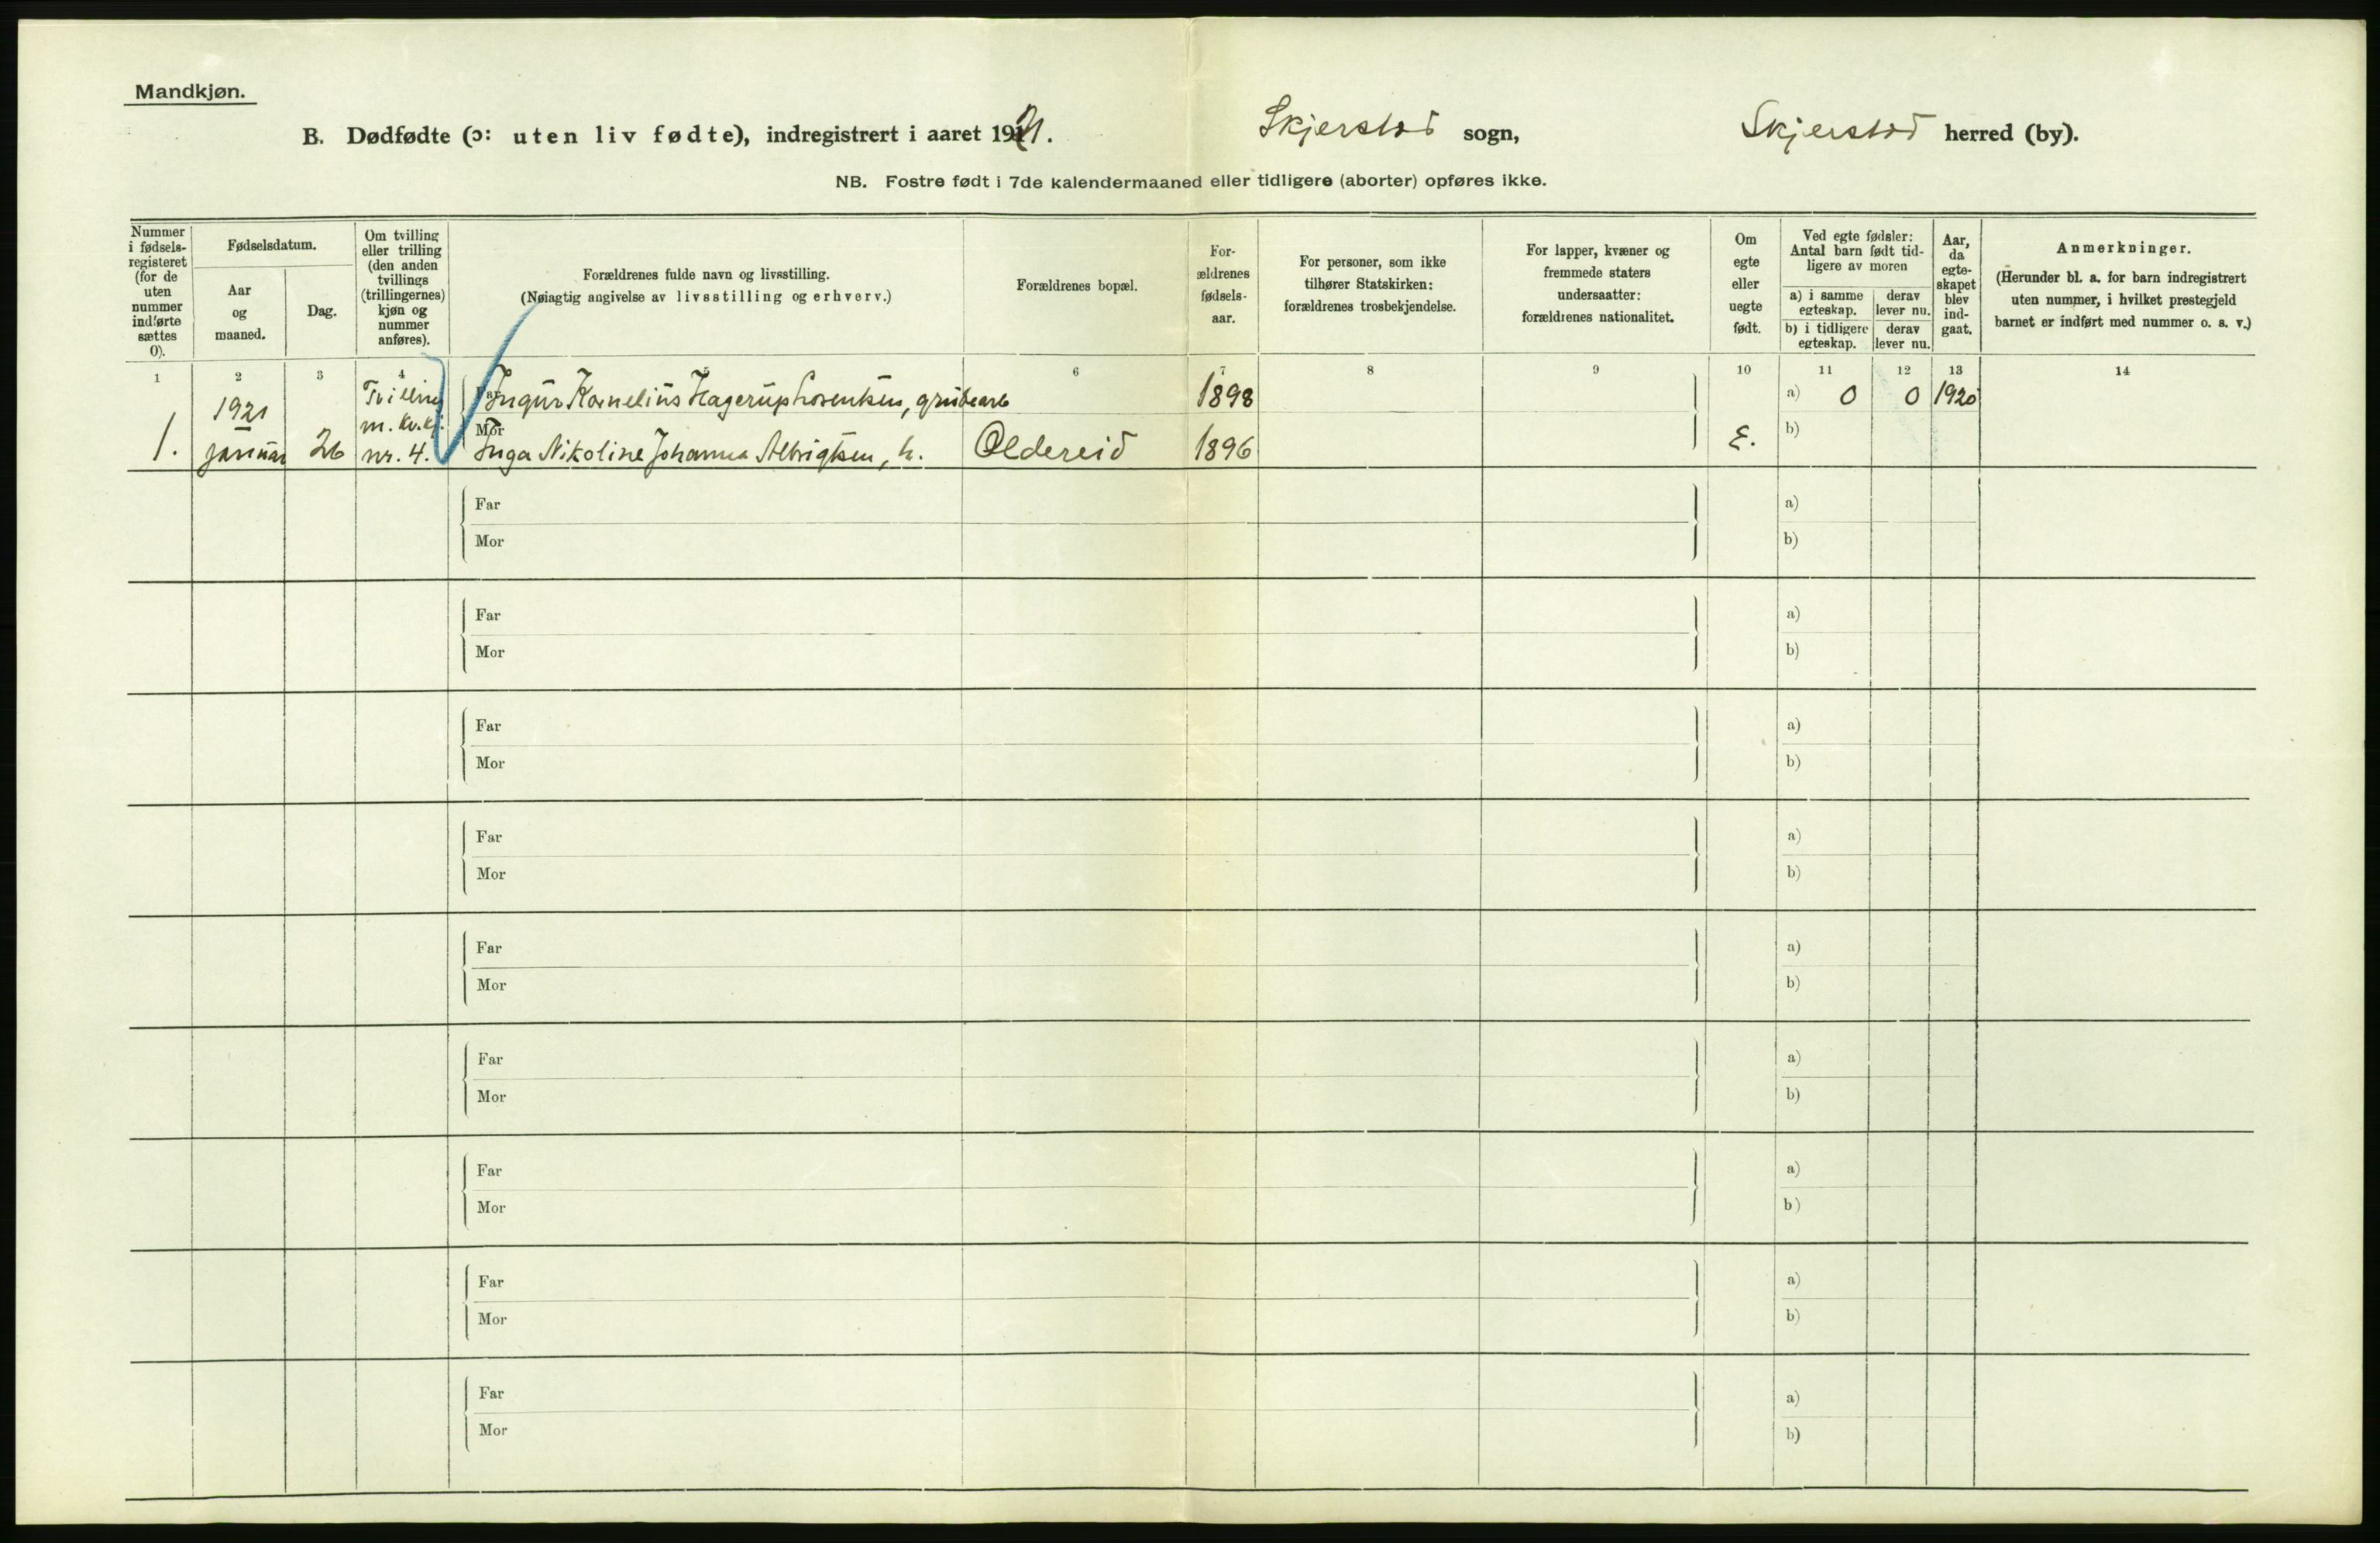 Mandkjøn.
B. Dødfødte (ɔ: uten liv fødte), indregistrert i aaret 1921. Skjerstad sogn, Skjerstad herred (by).
NB. Fostre født i 7de kalendermaaned eller tidligere (aborter) opføres ikke.
Nummer
i fødsels-
registeret
(for de
uten
nummer
indførte
sættes
0).
Fødselsdatum.
Aar
og
maaned.
Dag.
Om tvilling
eller trilling
(den anden
tvillings
(trillingernes)
kjøn og
nummer
anføres).
Forældrenes fulde navn og livsstilling.
(Nøiagtig angivelse av livsstilling og erhverv.)
Forældrenes bopæl.
For-
ældrenes
fødsels-
aar.
For personer, som ikke
tilhører Statskirken:
forældrenes trosbekjendelse.
For lapper, kvæner og
fremmede staters
undersaatter:
forældrenes nationalitet.
Om
egte
eller
uegte
født.
Ved egte fødsler:
Antal barn født tid-
ligere av moren
a) i samme
egteskap.
derav
lever nu.
b) i tidligere
egteskap.
derav
lever nu.
Aar,
da
egte-
skapet
blev
ind-
gaat.
Anmerkninger.
(Herunder bl. a. for barn indregistrert
uten nummer, i hvilket prestegjeld
barnet er indført med nummer o. s. v.)
1 2 3 4 5 6 7 8 9 10 11 12 13 14
1921 Trilling Far Ingur Kornelius Hagerup Lorentsen, grubearb 1898 a) 0 0 1920
m. kv.kj. Mor b)
1. januar 26 nr. 4. Inga Nikoline Johanna Albrigtsen, h. Oldereid 1896 E.
Far a)
Mor b)
Far a)
Mor b)
Far a)
Mor b)
Far a)
Mor b)
Far a)
Mor b)
Far a)
Mor b)
Far a)
Mor b)
Far a)
Mor b)
Far a)
Mor b)